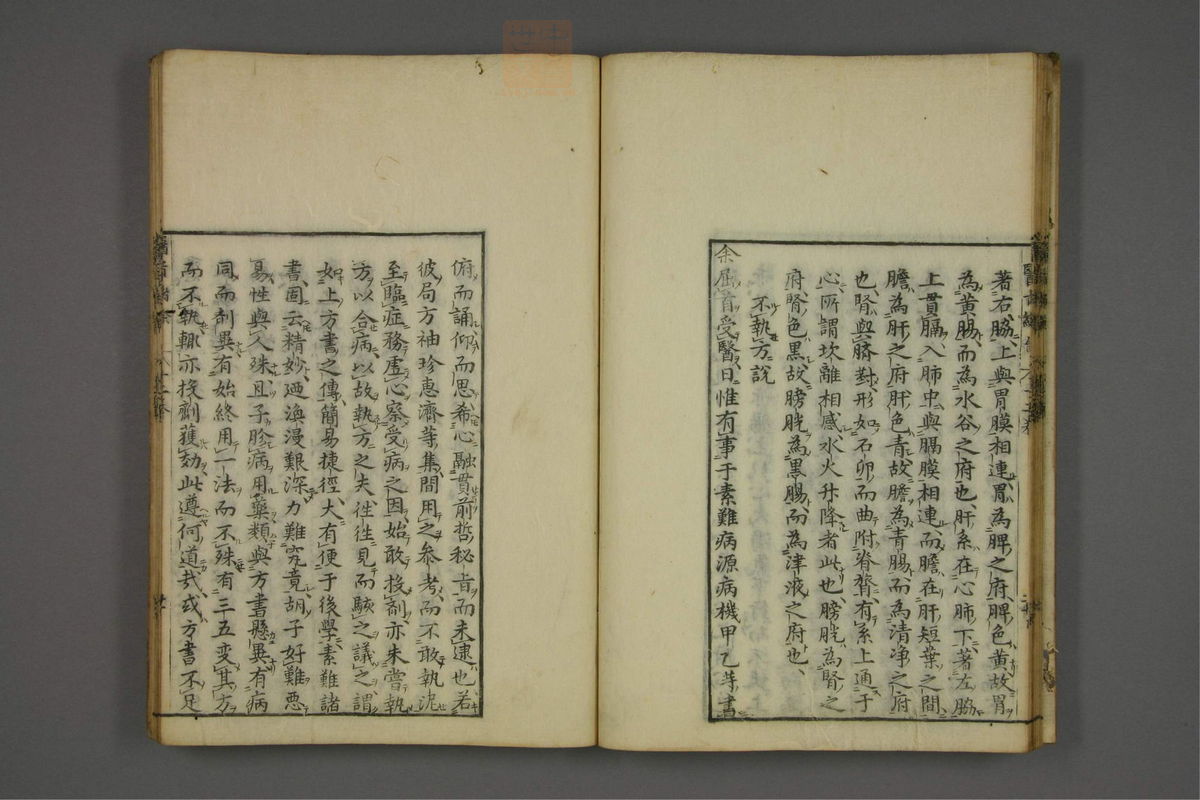 著右脇上與胃膜相連胃為脾之府脾色黃故胃
為黃腸而為水谷之府也肝系在心肺下著左脇
上貫膈入肺中與膈膜相連而膽在肝短葉之間
膽為肝之府肝色青故膽為青腸而為清净之府
也腎與臍對形如石卯而曲附脊膂有系上通于
心所謂坎離相感水火升降者此也膀胱為腎之
府腎色黑故膀胱為黒腸而為津液之府也
不執方說
余屈首受醫日惟有事于素難病源病機甲乙等書
俯而誦仰而思希心融貫前哲秘旨而未逮也若
彼局方袖珍惠濟等集間用之參考而不敢執泥
至臨症務虛心察受病之因始敢投劑亦未嘗執
方以合病以故執方之夫徃徃見而駭之議之謂
如上方書之傳簡易捷徑大有便于後學素難諸
書固云精妙廼渙漫艱深力難究竟胡子好難惡
易性與人殊且子胗病用藥類與方書懸異有病
同而劑異有始終用一法而不殊有三五变其方
而不執輙亦投劑獲効此遵何道哉或方書不足